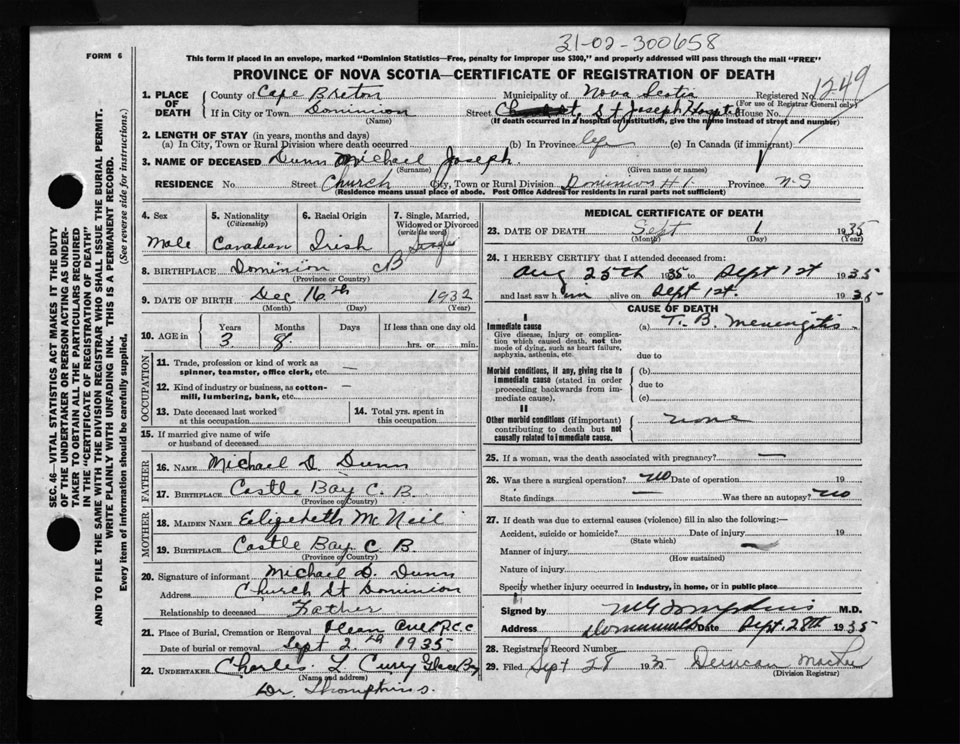 31-02-300658
FORM 6
This form if placed in an envelope, marked "Dominion Statistics—Free, penalty for improper use $300," and properly addressed will pass through the mail "FREE"
PROVINCE OF NOVA SCOTIA—CERTIFICATE OF REGISTRATION OF DEATH
1. PLACE OF DEATH
County of Cape Breton Municipality of Nova Scotia Registered No. 1249
(For use of Registrar General only)
If in City or Town Dominion Street St Joseph House No.
(Name) (If death occurred in a hospital or institution, give the name instead of street and number)
2. LENGTH OF STAY (in years, months and days)
(a) In City, Town or Rural Division where death occurred (b) In Province life (c) In Canada (if immigrant)
3. NAME OF DECEASED Dunn Michael Joseph.
(Surname) (Given name or names)
RESIDENCE No. Street Church City, Town or Rural Division Dominion Province N.S
(Residence means usual place of abode. Post Office Address for residents in rural parts not sufficient)
4. Sex
Male
5. Nationality (Citizenship)
Canadian
6. Racial Origin
Irish
7. Single, Married, Widowed or Divorced (write the word)
Single
8. BIRTHPLACE Dominion CB
(Province or Country)
9. DATE OF BIRTH Dec 16th 1932
(Month) (Day) (Year)
10. AGE in Years Months Days If less than one day old
3 8 hrs. or min.
OCCUPATION
11. Trade, profession or kind of work as spinner, teamster, office clerk, etc. —
12. Kind of industry or business, as cotton-mill, lumbering, bank, etc. —
13. Date deceased last worked at this occupation
14. Total yrs. spent in this occupation
15. If married give name of wife or husband of deceased
FATHER
16. NAME Michael D. Dunn
17. BIRTHPLACE Castle Bay C. B.
(Province or Country)
MOTHER
18. MAIDEN NAME Elizebeth McNeil
19. BIRTHPLACE Castle Bay C B
(Province or Country)
20. Signature of informant Michael D. Dunn
Address Church St Dominion
Relationship to deceased Father
21. Place of Burial, Cremation or Removal
Date of burial or removal Sept 2nd 1935.
22. UNDERTAKER Charles L Curry Glace Bay
(Name and address)
Dr. Thompkins.
MEDICAL CERTIFICATE OF DEATH
23. DATE OF DEATH Sept 1 1935
(Month) (Day) (Year)
24. I HEREBY CERTIFY that I attended deceased from:
Aug 25th 1935 to Sept 1st 1935
and last saw him alive on Sept 1st. 1935
CAUSE OF DEATH
I
Immediate cause (a) T. B. Menengitis.
Give disease, injury or complication which caused death, not the mode of dying, such as heart failure, asphyxia, asthenia, etc.
due to
Morbid conditions, if any, giving rise to immediate cause (stated in order proceeding backwards from immediate cause).
(b)
due to
(c)
II
Other morbid conditions (if important) contributing to death but not causally related to immediate cause.
none
25. If a woman, was the death associated with pregnancy? —
26. Was there a surgical operation? no Date of operation 19
State findings Was there an autopsy? no
27. If death was due to external causes (violence) fill in also the following:—
Accident, suicide or homicide? Date of injury 19
(State which)
Manner of injury
(How sustained)
Nature of injury
Specify whether injury occurred in industry, in home, or in public place
Signed by M.D.
Address Date Sept. 28th 1935
28. Registrar's Record Number
29. Filed Sept 28 1935
(Division Registrar)
SEC. 46—VITAL STATISTICS ACT MAKES IT THE DUTY
OF THE UNDERTAKER OR PERSON ACTING AS UNDER-
TAKER TO OBTAIN ALL THE PARTICULARS REQUIRED
IN THE "CERTIFICATE OF REGISTRATION OF DEATH"
AND TO FILE THE SAME WITH THE DIVISION REGISTRAR WHO SHALL ISSUE THE BURIAL PERMIT.
WRITE PLAINLY WITH UNFADING INK. THIS IS A PERMANENT RECORD.
Every item of information should be carefully supplied. (See reverse side for instructions.)